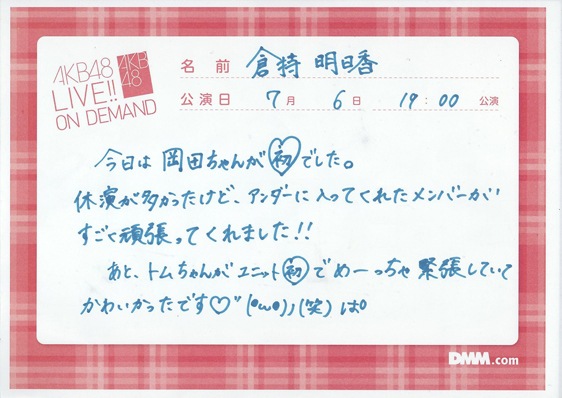 AKB48
LIVE!!
ON DEMAND
AKB
48
名前 倉持 明日香
公演日 7月 6日 19:00 公演
今日は 岡田ちゃんが 初 でした。
休演が多かったけど、アンダーに入ってくれたメンバーが
すごく頑張ってくれました!!
あと、トムちゃんがユニット初でめーっちゃ緊張していて
かわいかったです♡"(•ω•)ノ(笑)ぱ°
DMM.com